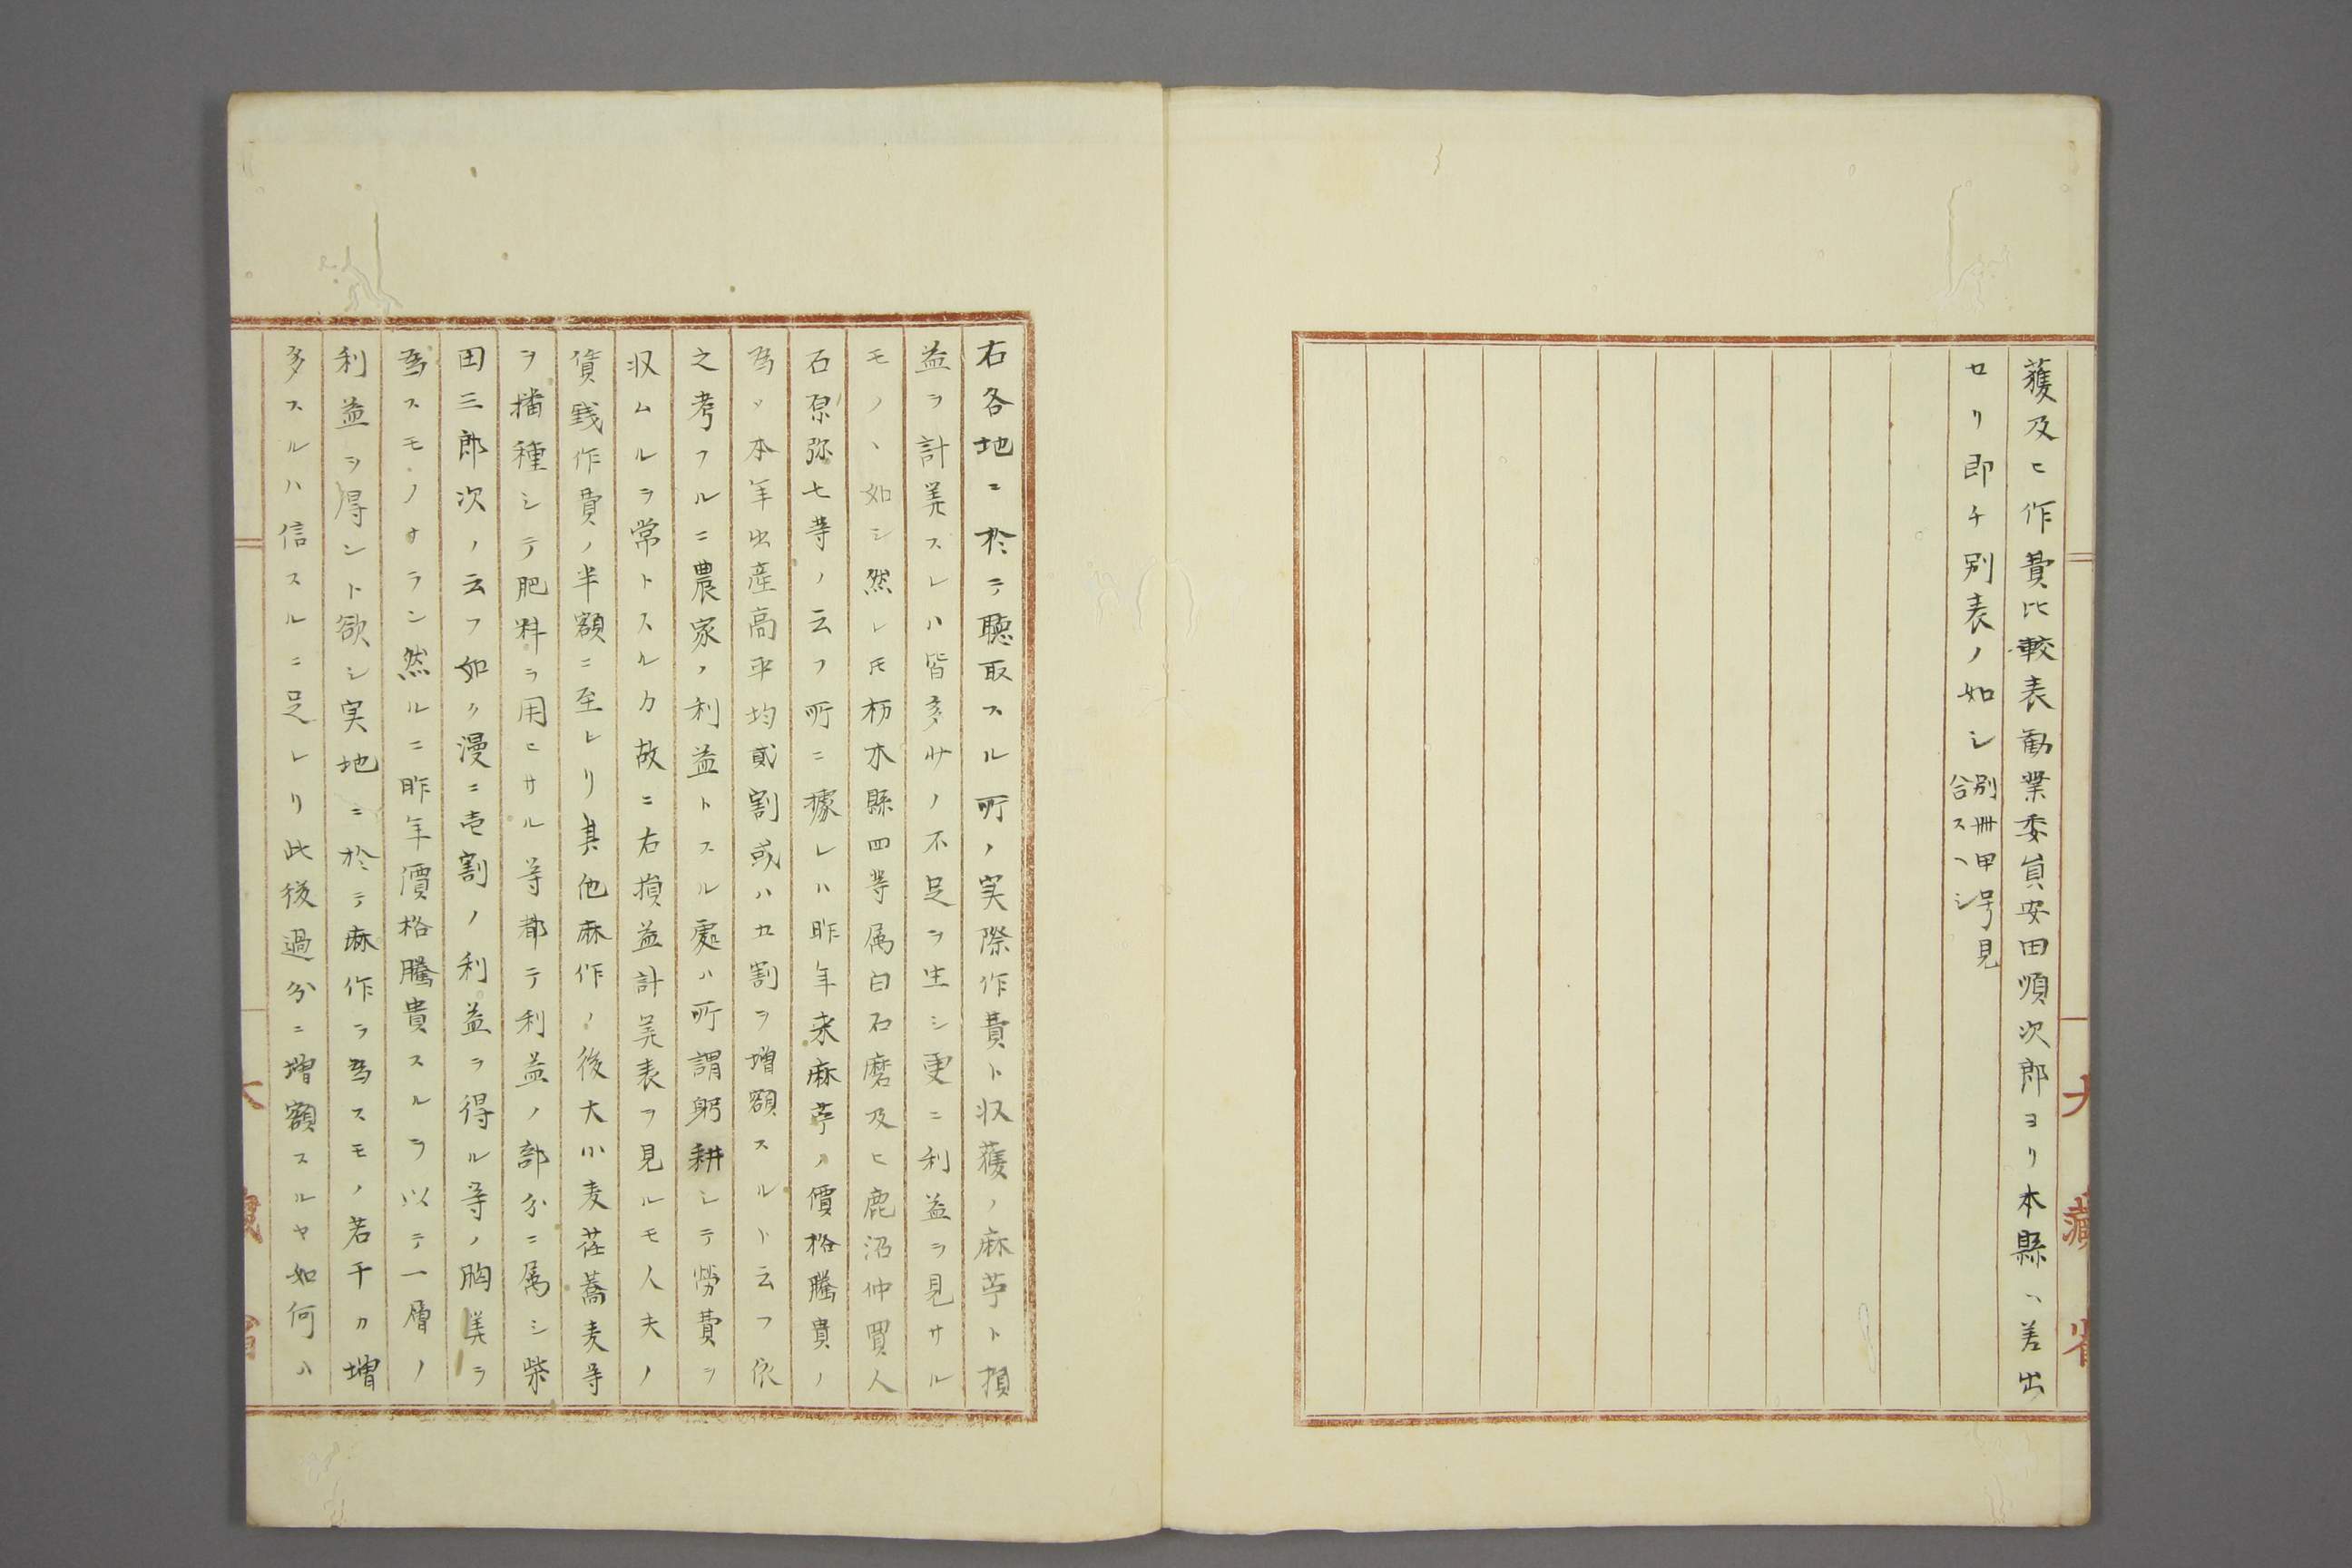 獲及ヒ作費比較表勧業委員安田順次郎ヨリ本縣ヘ差出
セリ即チ別表ノ如シ別冊甲号見
合スヘシ
大藏省
右各地ニ於テ聴取スル所ノ実際作費ト収獲ノ麻苧ト損
益ヲ計筭スレハ皆多少ノ不足ヲ生シ更ニ利益ヲ見サル
モノヽ如シ然レ𪜈栃木縣四等属白石磨及ヒ鹿沼仲買人
石原弥七等ノ云フ所ニ據レハ昨年来麻苧ノ價格騰貴ノ
為ヌ本年出産高平均貳割或ハ五割ヲ増額スルト云フ依
之考フルニ農家ノ利益トスル處ハ所謂躬耕シテ勞費ヲ
収ムルヲ常トスルカ故ニ右損益計筭表ヲ見ルモ人夫ノ
賃銭作費ノ半額ニ至レリ其他麻作ノ後大小麦荏蕎麦等
ヲ播種シテ肥料ヲ用ヒサル等都テ利益ノ部分ニ属シ柴
田三郎次ノ云フ如ク漫ニ壱割ノ利益ヲ得ル等ノ胸筭ヲ
為スモノナラン然ルニ昨年價格騰貴スルヲ以テ一層ノ
利益ヲ得ント欲シ実地ニ於テ麻作ヲ為スモノ若干カ増
多スルハ信スルニ足レリ此後過分ニ増額スルヤ如何ハ
大藏省